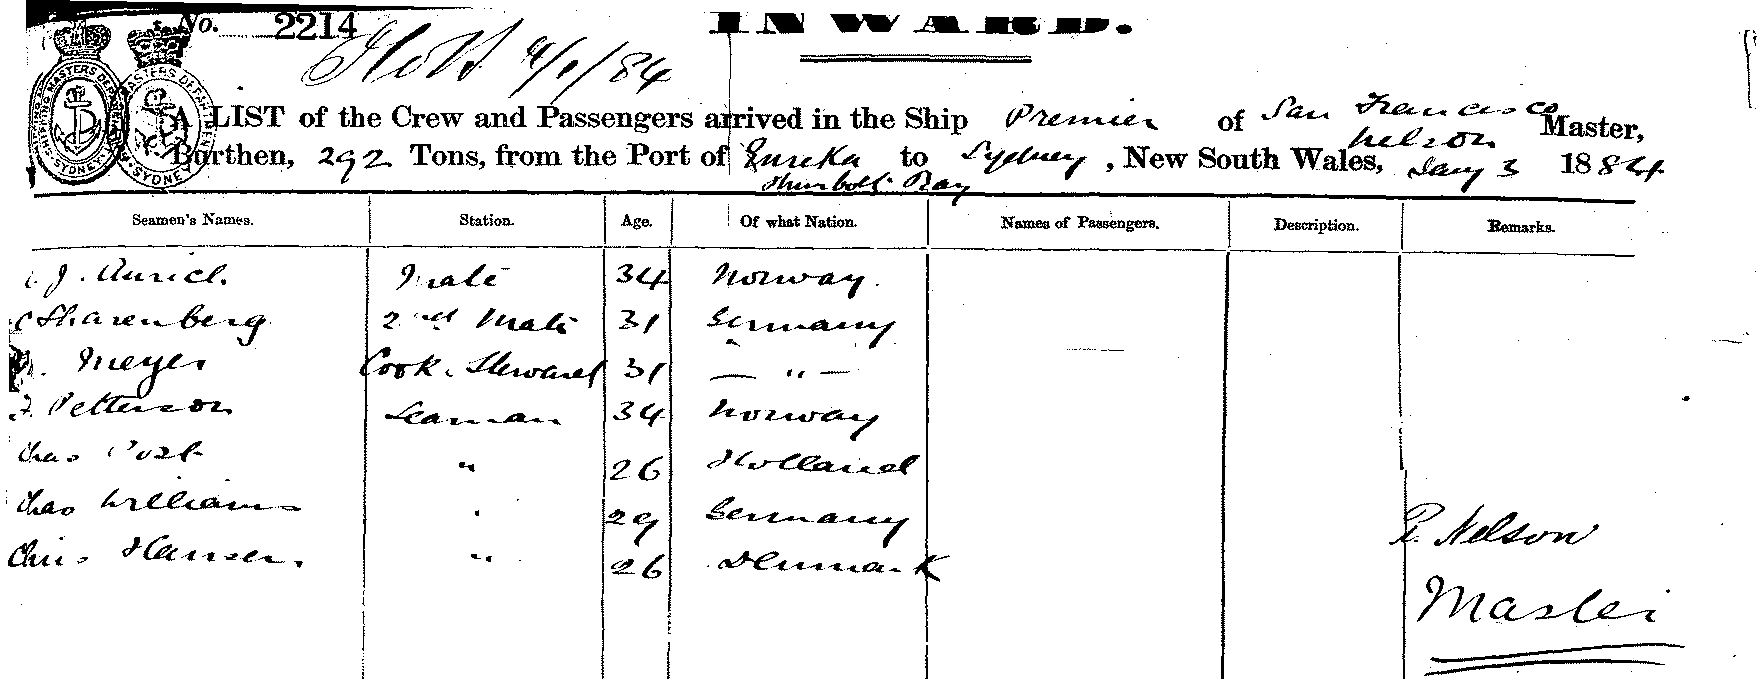 No. 2214
INWARD.
4/1/84
A LIST of the Crew and Passengers arrived in the Ship Premier of San Francisco Nelson Master,
Burthen, 292 Tons, from the Port of Eureka to Sydney, New South Wales, Jany 3 1884
Humboldt Bay
Seamen's Names. Station. Age. Of what Nation. Names of Passengers. Description. Remarks.
J. Mate 34 Norway.
Sharenberg 2nd Mate 31 Germany
Meyer Cook & Steward 31 — " —
Petterson Seaman 34 Norway
Chas Post " 26 Holland
Chas Williams " 29 Germany
Chris Hansen. " 26 Denmark
R. Nelson
Master